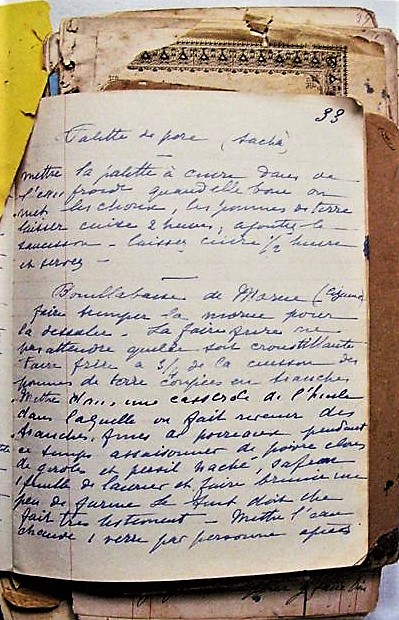 33
Palette de porc (Sacha)
mettre la palette à cuire dans de
l'eau froide quand elle bou on
met les choux, les pommes de terre
laisser cuire 2 heures, ajouter le
saucisson - laisser cuire 1/2 heure
et servez -
Bouillabaisse de Morue
faire tremper la morue pour
la dessaler. La faire frire ne
pas attendre quelle soit croustillante
faire frire a 3/4 de la cuisson des
pommes de terre coupées en tranches
Mettre dans une casserole de l'huile
dans laquelle on fait revenir des
tranches fines de poireaux pendant
ce temps assaisonner de poivre clous
de girofle et persil haché, safran
1 feuille de laurier et faire brunir un
peu de farine le tout doit être
fait très lestement - Mettre l'eau
chaude 1 verre par personne après